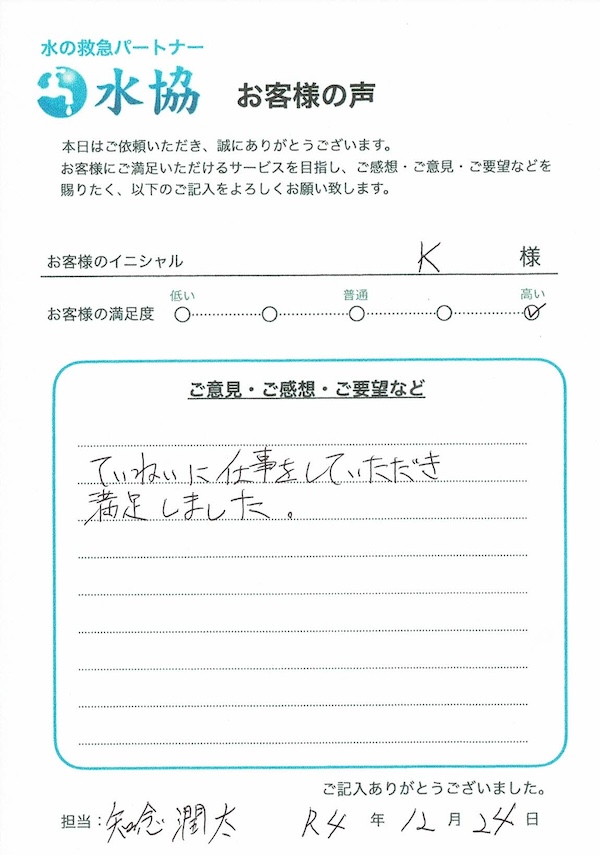 水の救急パートナー
水協 お客様の声
本日はご依頼いただき、誠にありがとうございます。
お客様にご満足いただけるサービスを目指し、ご感想・ご意見・ご要望などを
賜りたく、以下のご記入をよろしくお願い致します。
お客様のイニシャル K 様
低い 普通 高い
お客様の満足度
ご意見・ご感想・ご要望など
ていねいに仕事をしていただき
満足しました。
ご記入ありがとうございました。
担当：知念 潤太 R4 年 12 月 24 日